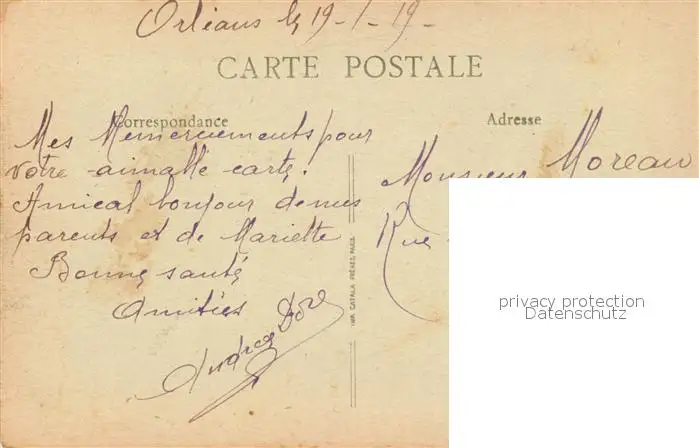 Orléans le 19-1-19-
CARTE POSTALE
Correspondance
Adresse
Mes Remerciements pour
votre aimable carte.
Amical bonjour de mes
parents et de Mariette
Bonne santé
Amitiés
Andrée Doré
Monsieur Moreau
Rue
IMP. CATALA FRÈRES, PARIS
privacy protection
Datenschutz